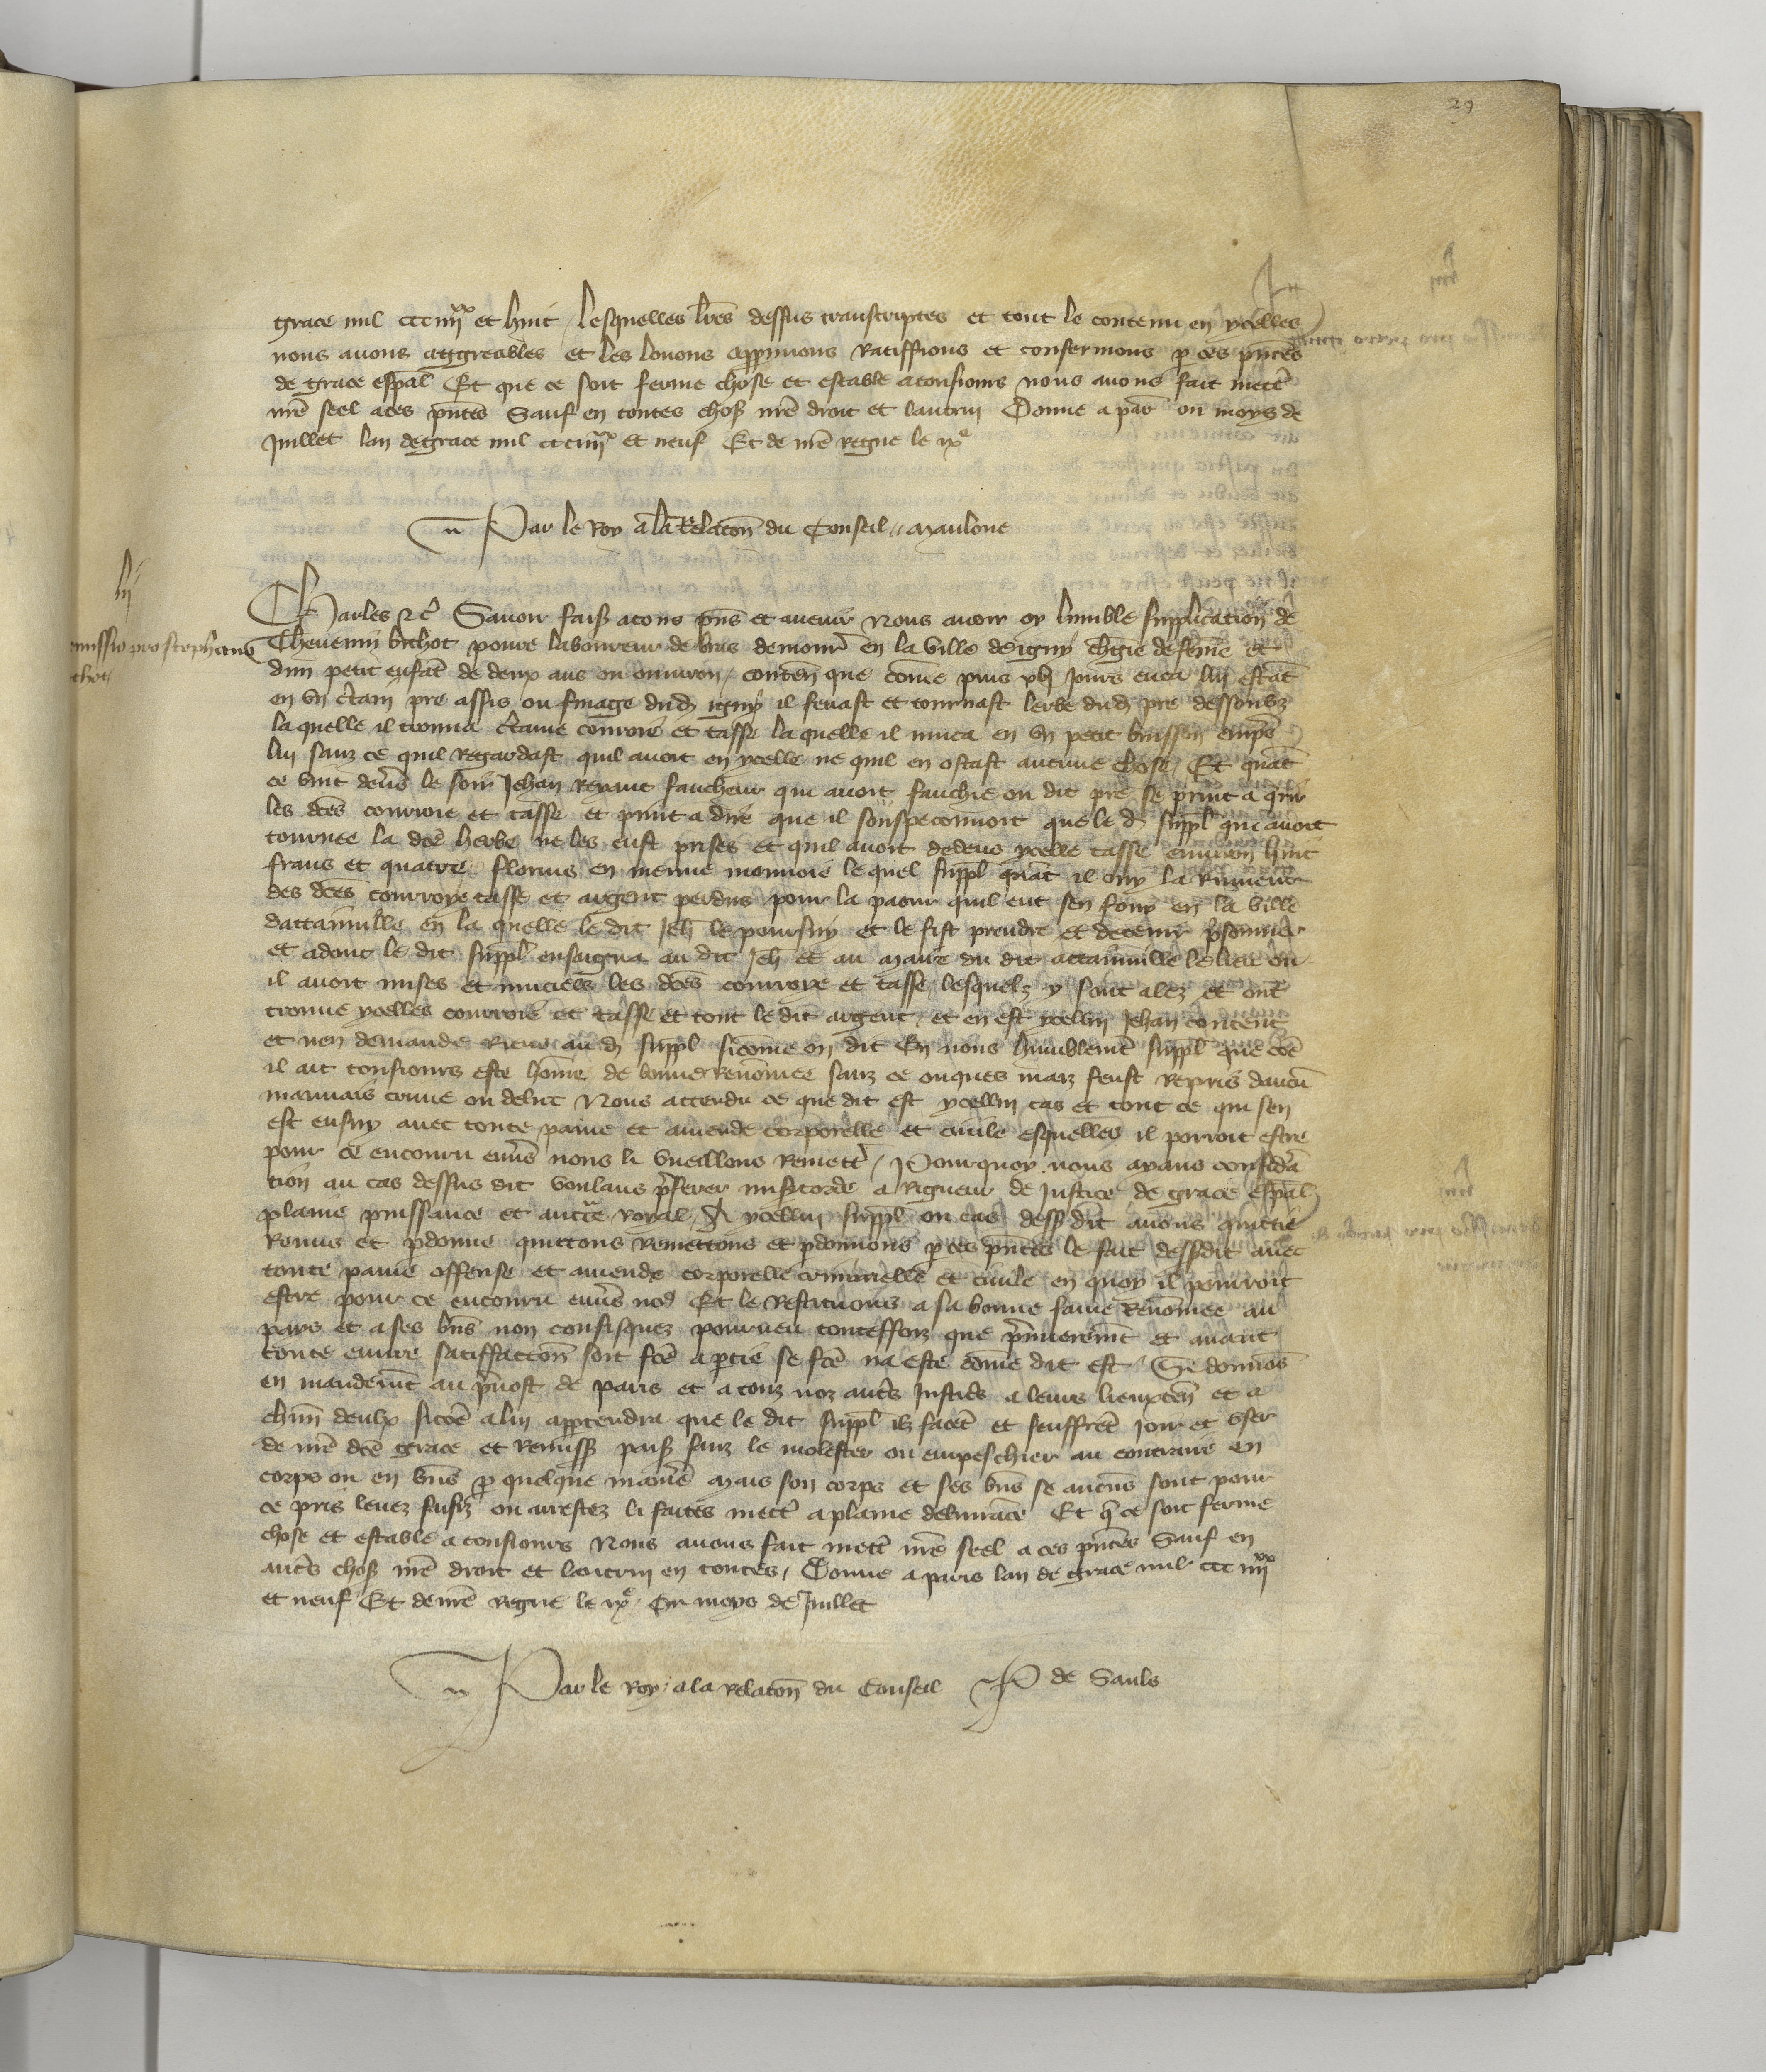 29
grace mil ccciiijxx et huit / lesquelles lres dessus transcriptes et tout le contenu en ycelles
nous auons aggreables et les louons appruuons ratiffions et confermons p ces pntes
de grace espal Et que ce soit ferme chose et estable a tousiours nous auons fait mettre
nre seel a ces pntes Sauf en toutes choses nre droit et lautruy Donne a par ou moys de
Juillet lan de grace mil ccciiijxx et neuf Et de nre regne le ixe
Par le Roy a la relacon du Conseil // Maulone
lij
Charles &c Sauoir faiss a tous pns et auenir Nous auoir oy lumble supplication de
missio pro stephano
Theuenin bichot poure laboureur de bras demour en la ville de igny chgie de feme et
chot
dun petit enfat de deux ans ou enuiron / conten que come puis xv jours enca luy estat
en vn ctain pre assis ou finage dud igny il fenast et tournast lerbe dud pre dessoubz
la quelle il trouua ctaine courroie et tasse la quelle il muca en vn petit buisson empres
luy sanz ce quil regardast quil auoit en ycelle ne quil en ostast aucune chose / Et quat
ce vint deuers le soir Jehan faucheur qui auoit fauchie ou dit pre se print a querir
les dces courroie et tasse et print a dire que il souspeconnoit que le d suppl qui auoit
tournee la dce herbe ne les eust prises et quil auoit dedens ycelle tasse enuiron huit
frans et quatre florins en menue monnoie le quel suppl quat il ouy la rumeur
des dces courroye tasse et argent perdus pour la paour quil eut sen fouy en la ville
dattainuille en la quelle le dit Jeh le poursuy et le fist prendre et detenir prisonnier
et adont le dit suppl enseigna au dit Jeh et au maire du dit attainuille le lieu ou
il auoit mises et muciees les dces courroye et tasse / lesquelz y sont alez et ont
trouue ycelles courroie et tasse et tout le dit argent / et en est ycelluy Jehan content
et nen demande riens au d suppl sicome on dit En nous humblemt suppl que coe
il ait tousiours este home de bonne renomee sanz ce onques maiz feust repris daucu
mauuais crime ou delict Nous attendu ce que dit est ycelluy cas et tout ce qui sen
est ensuy auec toute paine et amende corporelle et ciuile esquelles il porroit estre
pour ce encouru enuers nous li vueillons remettr / Pourquoy nous ayans considera
tion au cas dessus dit voulans pferer misericorde a rigueur de justice de grace espal
plaine puissance et aucte royal / A ycelluy suppl ou cas dess dit auons quictie
remis et pdonne quittons remettons et pdonnons p ces pntes le fait dess dit auec
toute paine offense et amende corporelle criminelle et ciuile en quoy il pourroit
estre pour ce encouru enuers nous Et le restituons a sa bonne fame renomee au
pays et a ses bns non confisquez pourueu toutesfoiz que pmierement et auant
toute euure satiffaccon soit fce a ptie se fce na este come dit est / Si donnos
en mandemt au preuost de paris et a touz noz autrs justics a leurs lieuxten et a
chun deulx sicoe a luy appartendra que le dit suppl ilz facet et seuffret joir et vser
de nre dce grace et remiss paiss sanz le molester ou empeschier au contraire en
corps ou en bns p quelque maniere Mais son corps et ses bns se aucuns sont pour
ce pris leuez saisiz ou arrestez li faites mettr a plaine deliurace Et q ce soit ferme
chose et estable a tousiours Nous auons fait mettr nre seel a ces pntes Sauf en
autrs choses nre droit et lautruy en toutes / Donne a paris lan de grace mil ccc iiijxx
et neuf Et de nre regne le ixe ou moys de Juillet
Par le Roy / a la relacon du Conseil P de Sauls